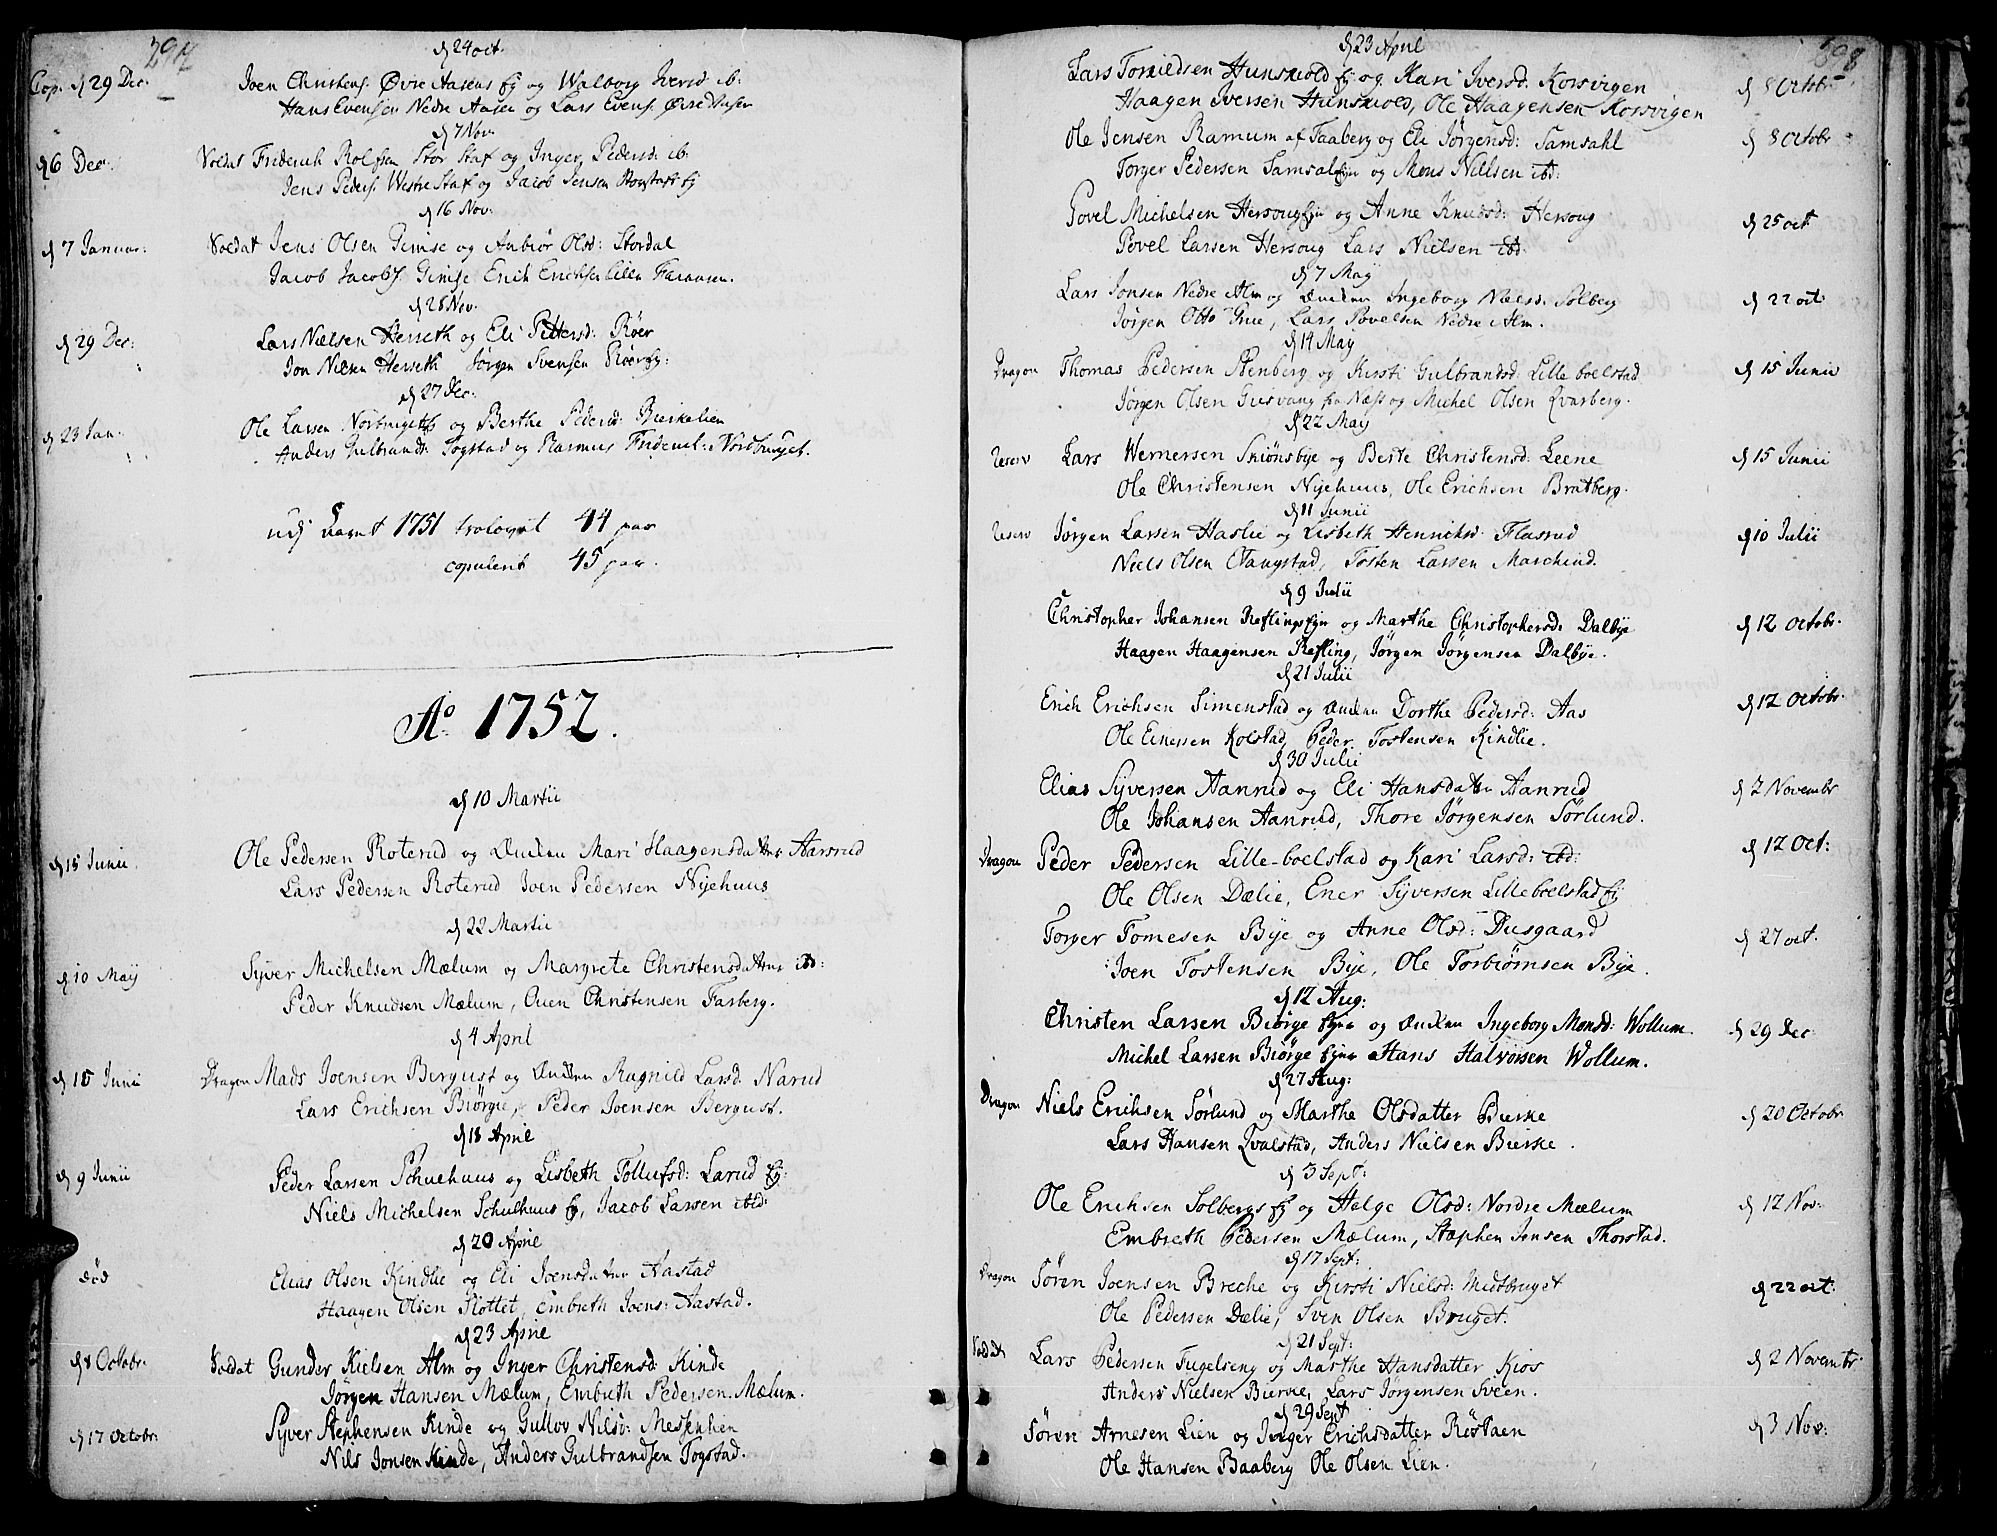 294
d 24 oct.
Cop. d 29 Dec. Joen Christens. Øvre Aasens ey og Walborg Iversd ib:
Hans Evensen Nedre Aasen og Lars Evens. Øvre Aasen
d 7 Nov.
d 6 Dec. Soldat Friderich Rolfsen Stor Staf og Inger Pedersd: ib:
Jens Peders. Westre Staf og Jacob Jensen Storstaf ey
d 16 Nov:
d 7 Januar: Soldat Jens Olsen Gimse og Anbiør Olsd: Stordal
Jacob Jacobs. Gimse Erich Erichsen Lille
d 28 Nov.
d 29 Dec: Lars Nielsen Herseth og Eli Pettersd: Røer
Jon Nielsen Herseth Jørgen Svensen Røer ey:
d 27 Dec:
d 23 Jan: Ole Larsen og Berthe Pedersd: Bierkelien
Anders Gulbrands: Togstad og Rasmus Friderich: Nordbruget.
udj Aaret 1751 trolovet 44 par
copulerit 45 par.
Ao 1752.
d 10 Martii
d 15 Junii Ole Pedersen Roterud og Enken Mari Haagensdatter Aarsrud
Lars Pedersen Roterud Joen Pedersen Nyehuus
d 22 Martii
d 10 May Syver Michelsen Mælum og Margrete Christensdatter ib:
Peder Knudsen Mælum, Ouen Christensen Farberg.
d 4 April
d 15 Junii Dragon Mads Joensen Bergust og Enken Ragnild Larsd: Narud
Lars Erichsen Biørge, Peder Joensen Bergust.
d 18 April
d 9 Junii Peder Larsen Schuehuus og Lisbeth Tollufsd: Larud ey:
Niels Michelsen Schulhuus ey, Jacob Larsen ibid:
d 20 April
død Elias Olsen Kindlie og Eli Joensdatter Aastad
Haagen Olsen Slottet, Embreth Joens: Aastad.
d 23 April
d 8 Octobr. Soldat Gunder Kielsen Alm og Inger Christensd: Kinde
Jørgen Hansen Mælum, Embreth Pedersen Mælum.
d 17 Octobr: Syver Stephensen Kinde og Gullov Nilsd: Meshulien
Nils Jonsen Kinde, Anders Gulbrandsen Togstad.
d 23 April
Lars Torkildsen Hunskiold ey og Kari Iversd: Korsvigen d 8 Octobr
Haagen Iversen Hunskiold, Ole Haagensen Korsvigen
Ole Jensen Ramum af Faaberg og Eli Jørgensd: Samsahl d 8 Octobr
Torger Pedersen Samsal eyn og Mons Nielsen ibd:
Povel Michelsen Hersoug eyn og Anne Knudsd: Hersoug d 25 oct
Povel Larsen Hersoug Lars Nielsen ibd:
d 7 May
Lars Jonsen Nedre Alm og Enken Ingeborg Nielsd: Solberg d 22 oct
Jørgen Otto Grue, Lars Povelsen Nedre Alm.
d 14 May
Dragon Thomas Pedersen Stenberg og Kirsti Gulbrandsd: Lille boelstad d 15 Junii
Jørgen Olsen Gusvang fra Næss og Michel Olsen Qvarberg.
d 22 May
reserv Lars Wernersen Skiønsbye og Berte Christensd: Leene d 15 Junii
Ole Christensen Nyehuus, Ole Erichsen Bratberg.
d 11 Junii
reserv Jørgen Larsen Haslie og Lisbeth Henrichsd: Flasrud d 10 Julii
Niels Olsen Taugstad, Tosten Larsen
d 9 Julii
Christopher Johansen Reflings eyn og Marthe Christophersd: Dalbye d 12 Octobr.
Haagen Haagensen Refling, Jørgen Jørgensen Dalbye.
d 21 Julii
Erich Erichsen Simenstad og Enken Dorthe Pedersd: Aas d 12 Octobr
Ole Enersen Kolstad, Peder Tostensen Kindlie.
d 30 Julii
Elias Syversen Aanrud og Eli Hansdatter Aanrud d 2 Novembr
Ole Johansen Aanrud, Thore Jørgensen Sørlund.
Dragon Peder Pedersen Lille-boelstad og Kari Larsd: ibd: d 12 Oct:
Ole Olsen Dælie, Ener Syversen Lilleboelstad ey
Torger Tomesen Bye og Anne Olsd: Dusgaard d 27 oct.
Joen Tostensen Bye, Ole Torbiørnsen Bye.
d 12 Aug:
Christen Larsen Biørge eyn og Enken Ingeborg Monsd: Wollum. d 29 Dec
Michel Larsen Biørge eyn Hans Halvorsen Wollum.
d 27 Aug:
Dragon Niels Erichsen Sørlund og Marthe Olsdatter Bierke d 20 Octobr
Lars Hansen Qvalstad, Anders Nielsen Bierke.
d 3 Sept:
Ole Erichsen Solbergs ey og Helge Olsd: Nordre Mælum d 12 Nov:
Embreth Pedersen Mælum, Stephen Jensen Thorstad.
d 17 Sept:
Dragon Søren Joensen Breche og Kirsti Nielsd: Midtbruget d 22 oct:
Ole Pedersen Dælie, Sven Olsen Bruget.
d 21 Sept:
Soldat Lars Pedersen Fugelseng og Marthe Hansdatter Kios d 2 Novembr
Anders Nielsen Bierke, Lars Jørgensen Sveen.
d 29 Sept
Søren Arnesen Lien og Inger Erichsdatter Røstaen d 3 Nov:
Ole Hansen Baaberg Ole Olsen Lien.